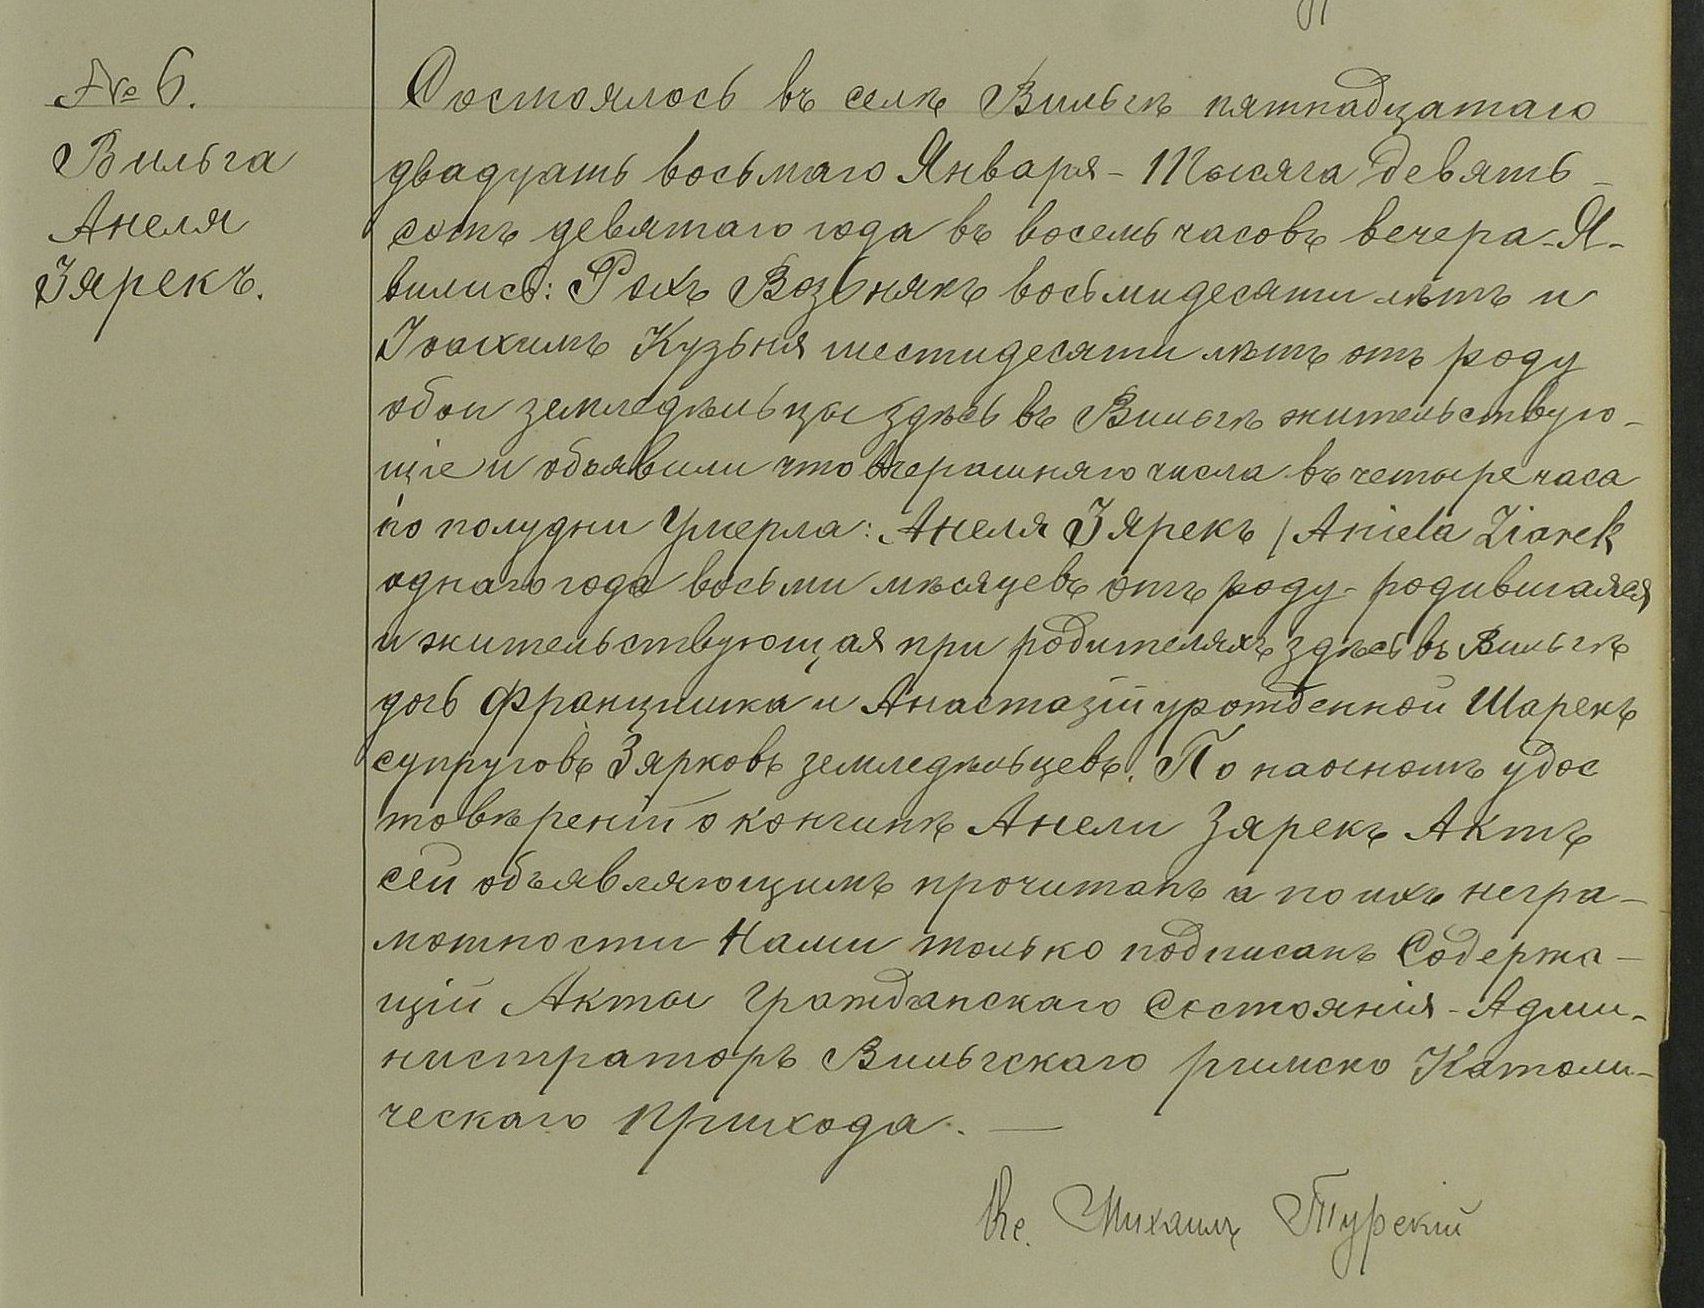 № 6.
Вильга
Анеля
Зярекъ.
Состоялось въ селѣ Вильгѣ пятнадцатаго
двадцать восьмаго Января - Тысяча девять -
сотъ девятаго года въ восемь часовъ вечера - Я -
вились: Рохъ Возьнякъ восьмидесяти лѣтъ и
Іоахимъ Кузьня шестидесяти лѣтъ отъ роду
обои земледѣльцы здѣсь въ Вильгѣ жительствую -
щіе и объявили что вчерашняго числа въ четыре часа
по полудни Умерла: Анеля Зярекъ / Aniela Ziarek
однаго года восьми мѣсяцевъ отъ роду - родившаяся
и жительствующая при родителяхъ здѣсь въ Вильгѣ
дочь Францишка и Анастазіи урожденной Шарекъ
супруговъ Зярковъ земледѣльцевъ. По наочномъ удос
товѣреніи о кончинѣ Анели Зярекъ Актъ
сей объявляющимъ прочитанъ а по ихъ негра -
мотности Нами только подписанъ Содержа -
щій Акты Гражданскаго Состоянія - Адми -
нистраторъ Вильгскаго римско Католи -
ческаго прихода. —
Кс. Михаилъ Турскій